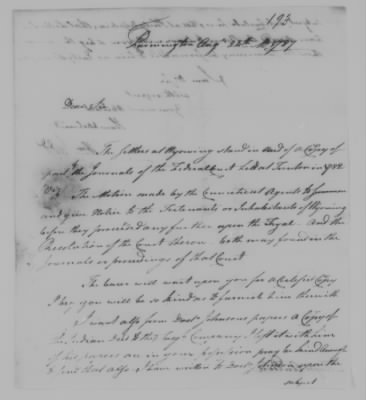 193
Farmington Augt 24th 1787
Dear Sir
The Settlers at Wyoming stand in need of a Copy of
part the Journals of the Federal Court held at Trenton in 1782
Viz. The Motion made by the Connecticut Agents to Summon
and give Notice to the Tertenants or Inhabitants of Wyoming
before they proceeded any further upon the Tryal. And the
Resolution of the Court thereon. both may found in the
Journals or proceedings of that Court
The bearer will wait upon you for a Certified Copy
I beg you will be so kind as to furnish him therewith
I want also from Doctr Johnsons papers a Copy of
the Indian Deed to the Company I left it with him
if his papers are in your possession pray be kind enough
to send that also I have written to Doctr Johnson upon the
subject